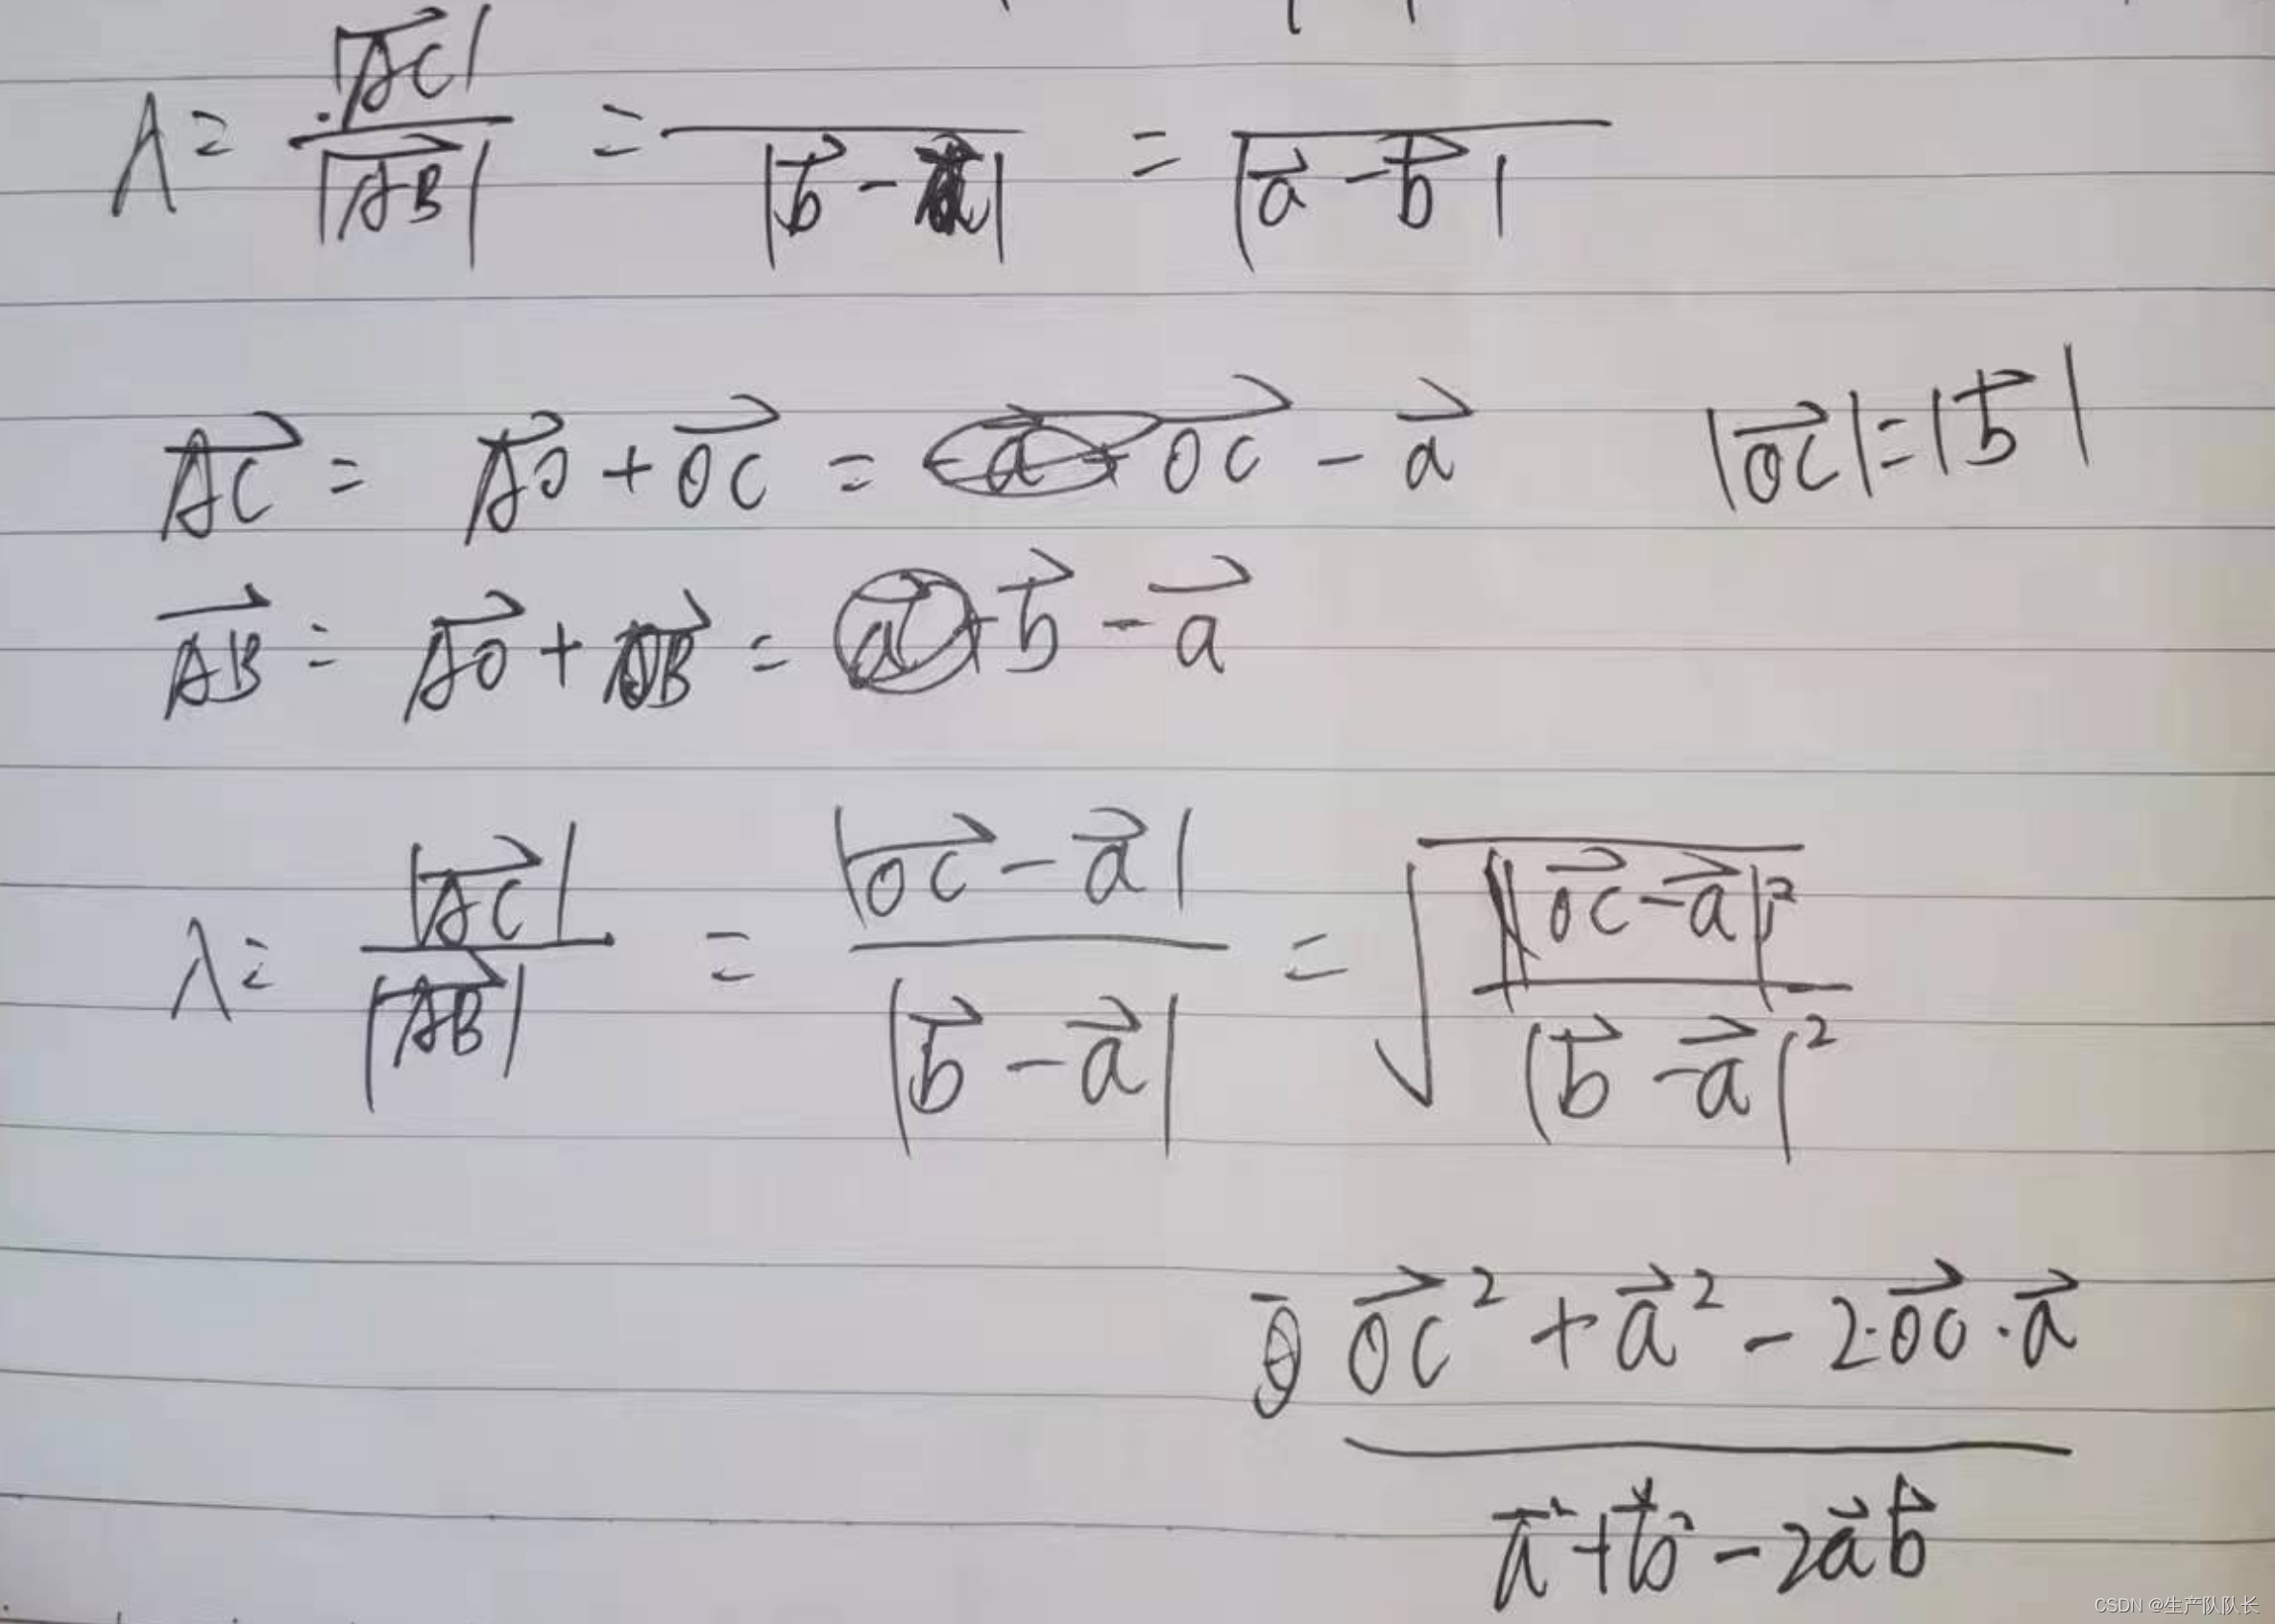 λ = |AC→| / |AB→| = / |b→ - a→| = / |a→ - b→|
AC→ = AO→ + OC→ = OC→ - a→ |OC→| = |b→|
AB→ = AO→ + OB→ = b→ - a→
λ = |AC→| / |AB→| = |OC→ - a→| / |b→ - a→| = √(|OC→ - a→|² / |b→ - a→|²)
OC→² + a→² - 2·OC→·a→
a→² + b→² - 2a→b→
CSDN @生产队队长